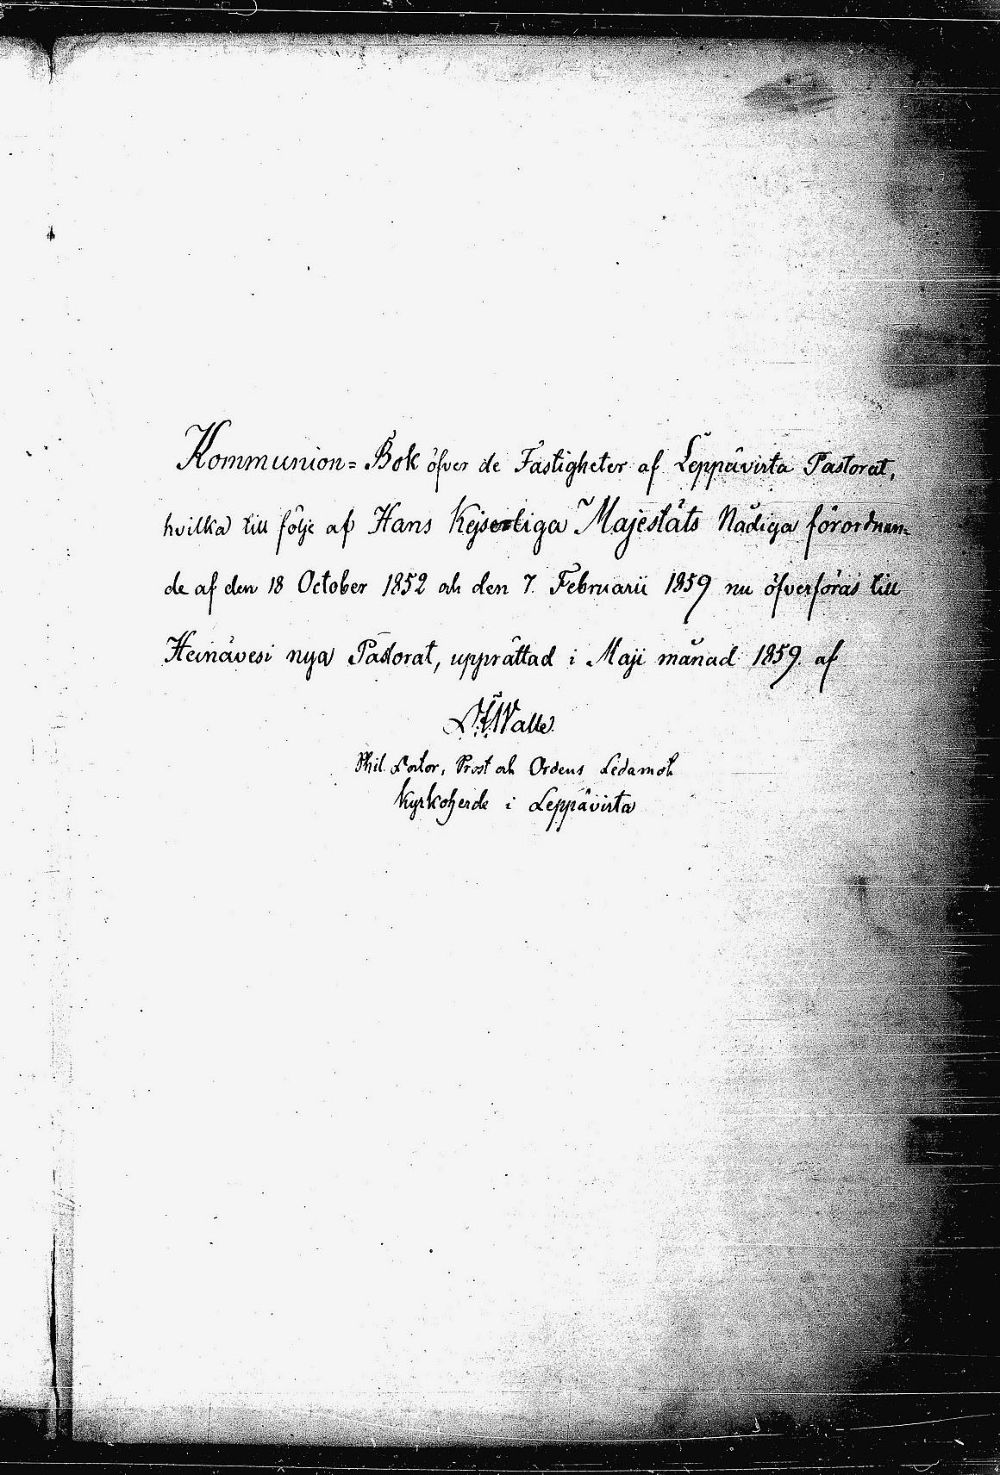 Kommunion= Bok öfver de Fastigheter af Leppävirta Pastorat,
hvilka till följe af Hans Kejserliga Majestäts Nådiga förordnan-
de af den 18 October 1852 och den 7. Februarii 1859 nu öfverföras till
Heinävesi nya Pastorat, upprättad i Maji månad 1859. af
Walle
Phil. Doctor, Prost och Ordens Ledamot
Kyrkoherde i Leppävirta